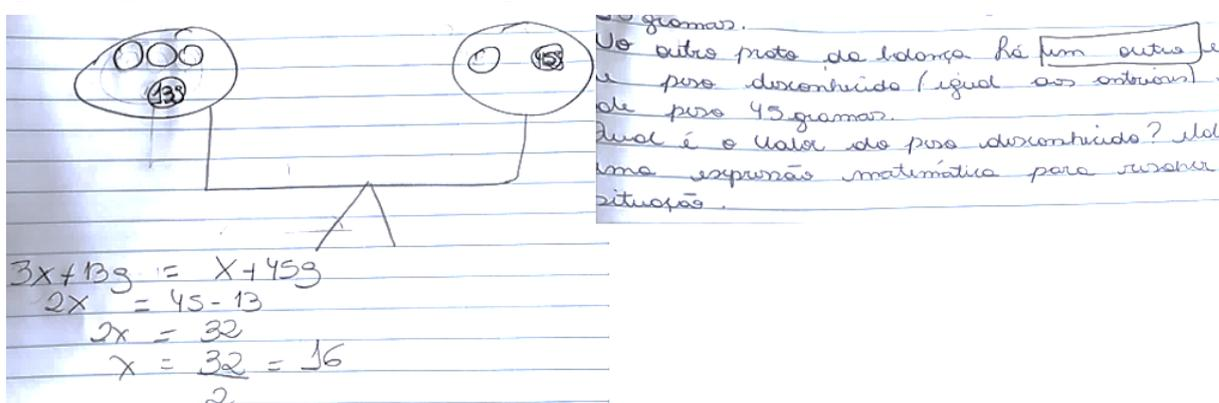 13g
45g
3x + 13g = x + 45g
2x = 45 - 13
2x = 32
x = 32 = 16
2
gramas.
No outro prato da balança há um outro
peso desconhecido (igual aos anteriores)
de peso 45 gramas.
Qual é o valor do peso desconhecido?
uma expressão matemática para resolver
situação.